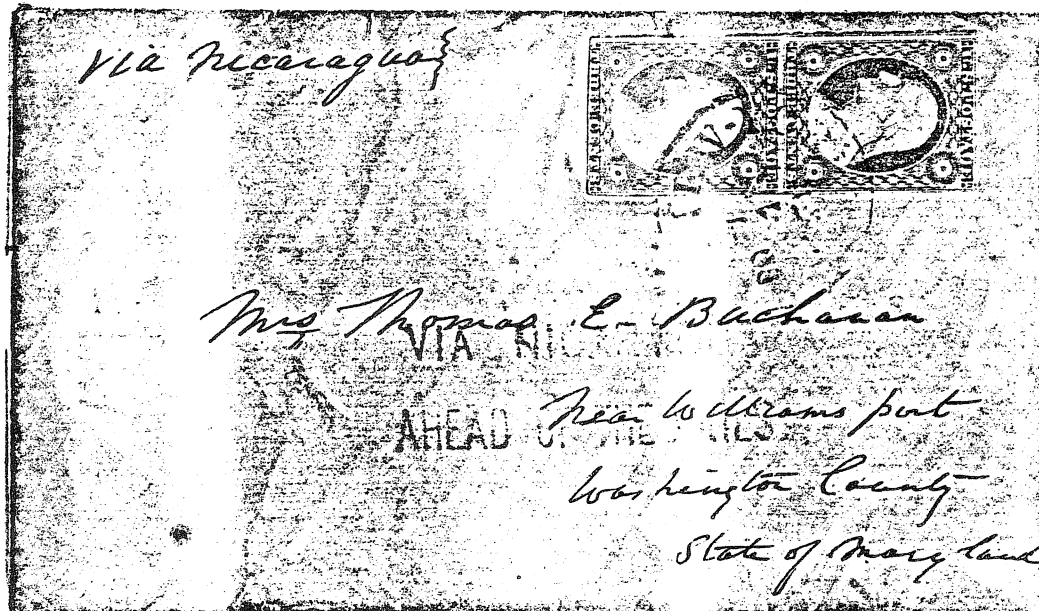 via Nicaragua
Mrs Thomas E. Buchanan
VIA
AHEAD
near Williams port
Washington County
State of Maryland